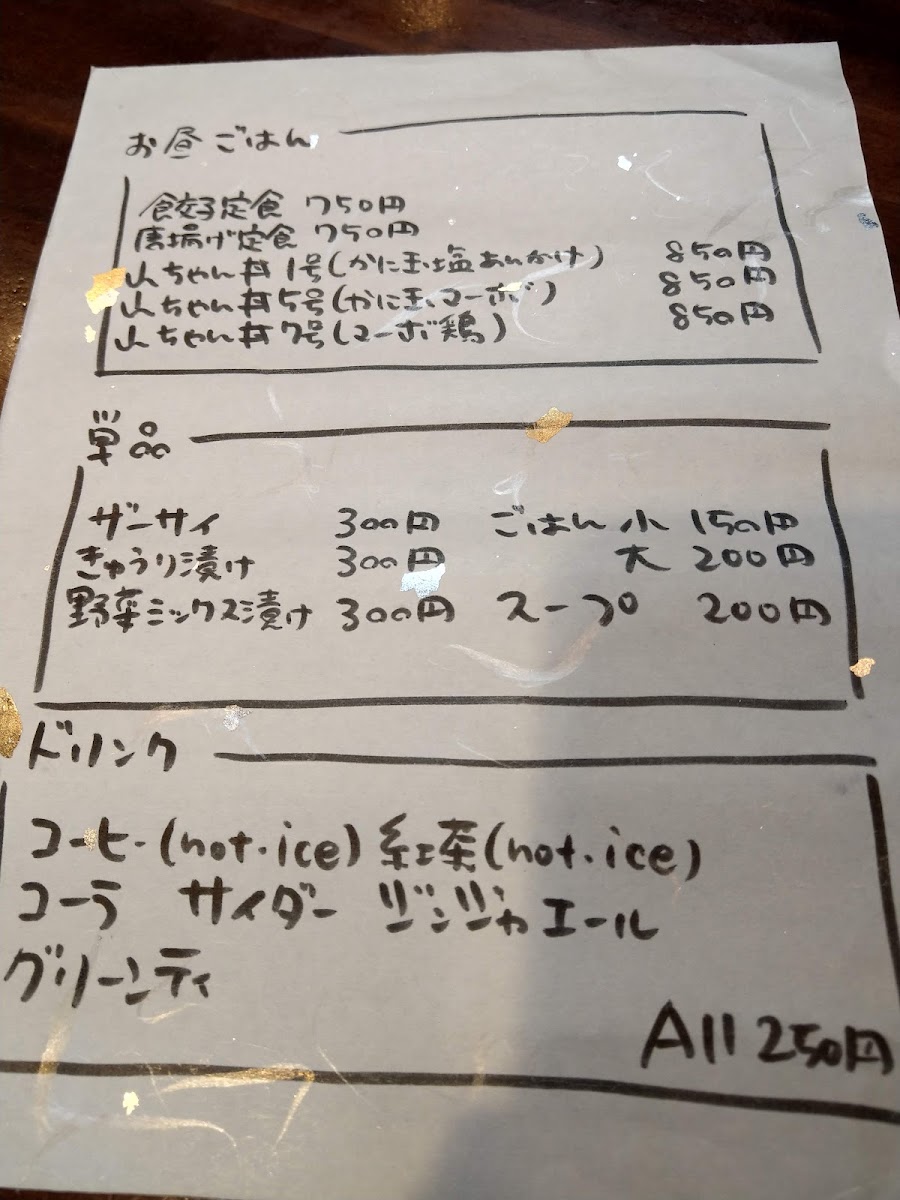 お昼ごはん
餃子定食 750円
唐揚げ定食 750円
山ちゃん丼1号(かに玉塩あんかけ) 850円
山ちゃん丼5号(かに玉マーボ) 850円
山ちゃん丼7号(マーボ鶏) 850円
単品
ザーサイ 300円 ごはん 小 150円
きゅうり漬け 300円 大 200円
野菜ミックス漬け 300円 スープ 200円
ドリンク
コーヒー(hot・ice) 紅茶(hot・ice)
コーラ サイダー ジンジャエール
グリーンティ
All 250円